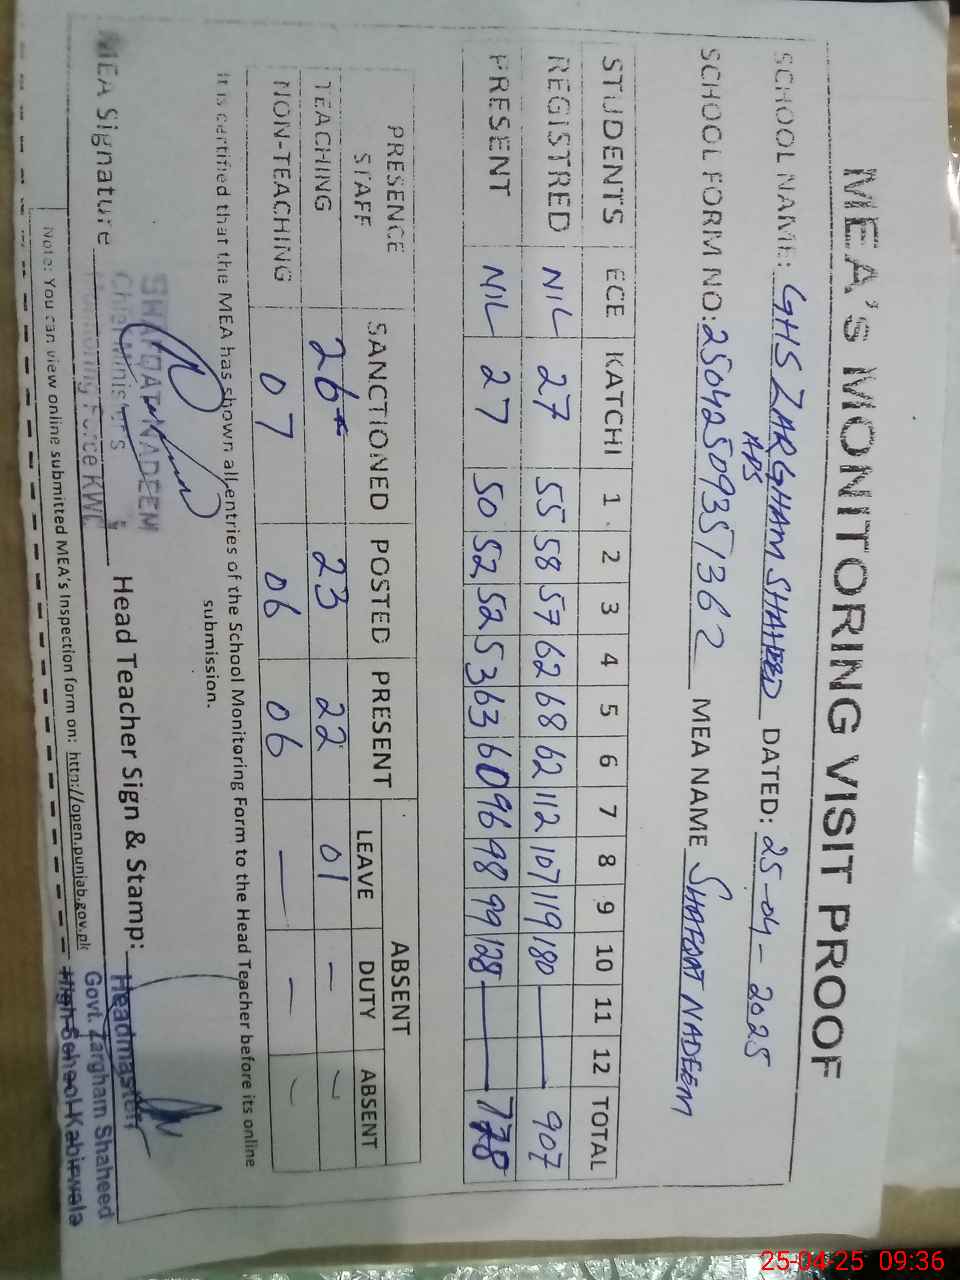 MEA'S MONITORING VISIT PROOF
SCHOOL NAME: GHS ZARGHAM SHAHEED APS DATED: 25-04-2025
SCHOOL FORM NO: 25042509351362 MEA NAME SHAFQAT NADEEM
STUDENTS ECE KATCHI 1 2 3 4 5 6 7 8 9 10 11 12 TOTAL
REGISTRED NIL 27 55 58 57 62 68 62 112 107 119 180 — 907
PRESENT NIL 27 50 52 52 53 63 60 96 98 99 128 — 778
PRESENCE STAFF SANCTIONED POSTED PRESENT ABSENT
LEAVE DUTY ABSENT
TEACHING 26* 23 22 01 – –
NON-TEACHING 07 06 06 — – –
It is certified that the MEA has shown all entries of the School Monitoring Form to the Head Teacher before its online
submission.
SHAFQAT NADEEM
Chief Minister's
Monitoring Force KWL
MEA Signature Head Teacher Sign & Stamp: Headmaster
Govt. Zargham Shaheed
High School Kabirwala
Note: You can view online submitted MEA's Inspection form on: http://open.punjab.gov.pk
25-04-25 09:36